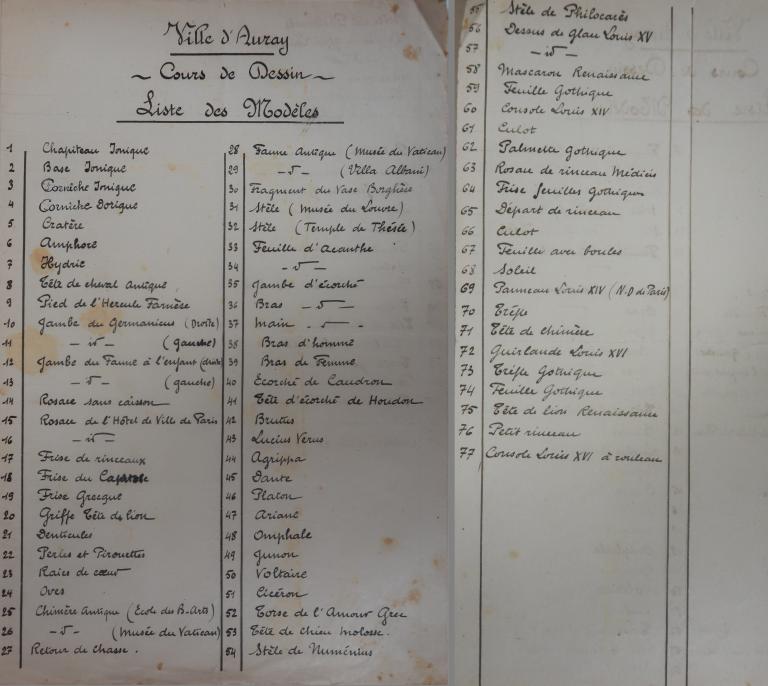 Ville d'Auray
~ Cours de Dessin ~
Liste des Modèles
1 Chapiteau Ionique
2 Base Ionique
3 Corniche Ionique
4 Corniche Dorique
5 Cratère
6 Amphore
7 Hydrie
8 Tête de cheval antique
9 Pied de l'Hercule Farnèse
10 Jambe du Germanicus (Droite)
11 — id — (gauche)
12 Jambe du Faune à l'enfant (droite)
13 — d° — (gauche)
14 Rosace sans caisson
15 Rosace de l'Hôtel de Ville de Paris
16 — id —
17 Frise de rinceaux
18 Frise du
19 Frise Grecque
20 Griffe Tête de lion
21 Denticules
22 Perles et Pirouettes
23 Raies de cœur
24 Oves
25 Chimère Antique (Ecole des B-Arts)
26 — d° — (Musée du Vatican)
27 Retour de chasse.
28 Faune Antique (Musée du Vatican)
29 — d° — (Villa Albani)
30 Fragment du Vase Borghèse
31 Stèle (Musée du Louvre)
32 Stèle (Temple de Thésée)
33 Feuille d'Acanthe
34 — d° —
35 Jambe d'écorché
36 Bras — d° —
37 Main — d° —
38 Bras d'homme
39 Bras de Femme
40 Ecorché de Caudron
41 Tête d'écorché de Houdon
42 Brutus
43 Lucius Vérus
44 Agrippa
45 Dante
46 Platon
47 Ariane
48 Omphale
49 Junon
50 Voltaire
51 Cicéron
52 Torse de l'Amour Grec
53 Tête de chien molosse.
54 Stèle de Numénius
55 Stèle de Philocarès
56 Dessus de glace Louis XV
57 — id —
58 Mascaron Renaissance
59 Feuille Gothique
60 Console Louis XIV
61 Culot
62 Palmette gothique
63 Rosace de rinceau Médicis
64 Frise feuilles Gothiques
65 Départ de rinceau
66 Culot
67 Feuille avec boules
68 Soleil
69 Panneau Louis XIV (N-D de Paris)
70 Trèfle
71 Tête de chimère
72 Guirlande Louis XVI
73 Trèfle Gothique
74 Feuille Gothique
75 Tête de lion Renaissance
76 Petit rinceau
77 Console Louis XVI à rouleau